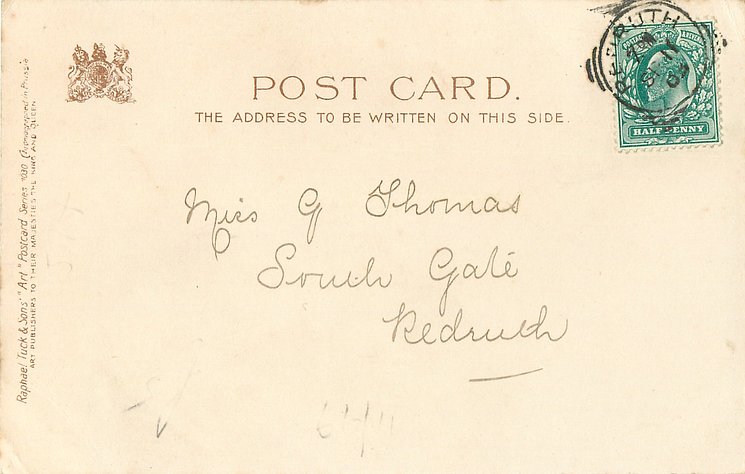 POST CARD.
THE ADDRESS TO BE WRITTEN ON THIS SIDE.
REDRUTH
HALFPENNY
Miss G Thomas
South Gate
Redruth
Raphael Tuck & Sons' "Art" Postcard Series 1030 Chromographed in Prussia
ART PUBLISHERS TO THEIR MAJESTIES THE KING AND QUEEN